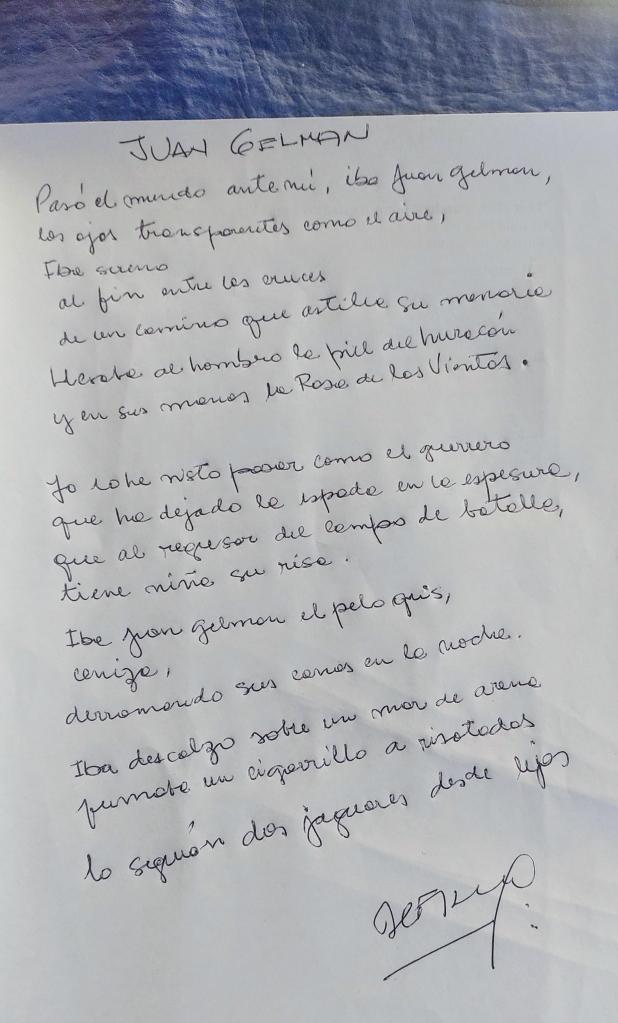 JUAN GELMAN
Pasó el mundo ante mí, iba Juan Gelman,
los ojos transparentes como el aire,
Iba sereno
al fin entre las cruces
de un camino que astilla su memoria
Llevaba al hombro la piel del huracán
y en sus manos la Rosa de los Vientos.
Yo lo he visto pasar como el guerrero
que ha dejado la espada en la espesura,
que al regresar del campo de batalla,
tiene niña su risa.
Iba Juan Gelman el pelo gris,
ceniza,
derramando sus canas en la noche.
Iba descalzo sobre un mar de arena
fumaba un cigarrillo a risotadas
lo seguían dos jaguares desde lejos